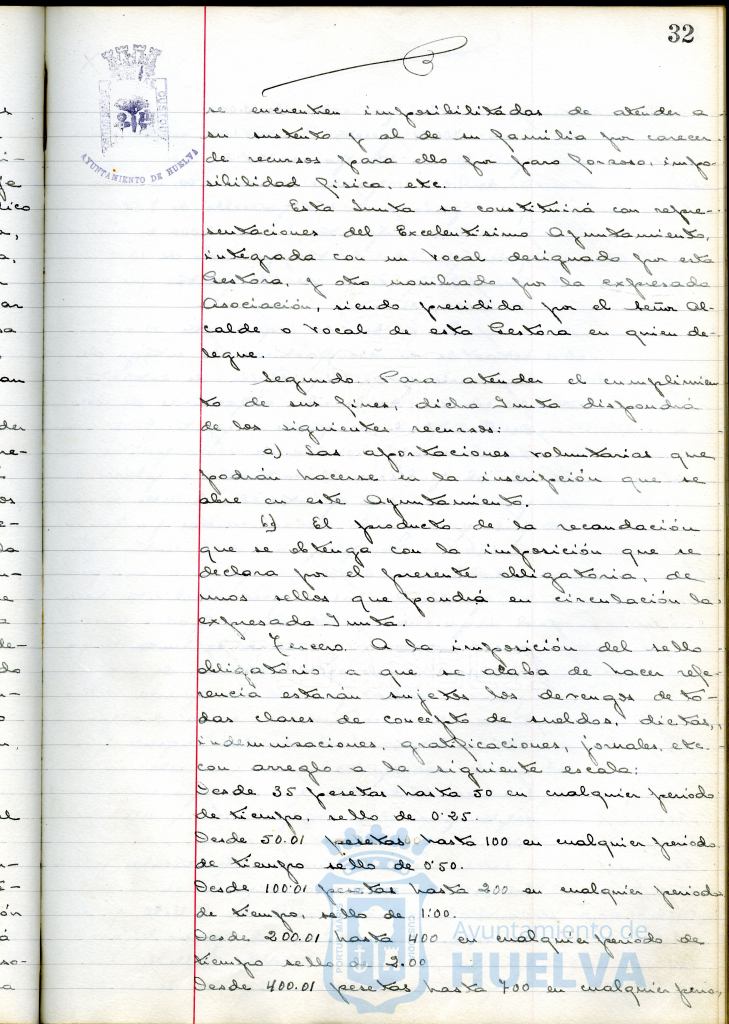 32
AYUNTAMIENTO DE HUELVA
se encuentren imposibilitadas de atender a
su sustento y al de su familia por carecer
de recursos para ello por paro forzoso, impo-
sibilidad física, etc.
Esta Junta se constituirá con repre-
sentaciones del Excelentísimo Ayuntamiento,
integrada con un Vocal designado por esta
Gestora, y otro nombrado por la expresada
Asociación, siendo presidida por el señor Al-
calde o Vocal de esta Gestora en quien de-
legue.
Segundo. Para atender el cumplimien
to de sus fines, dicha Junta dispondrá
de los siguientes recursos:
a) Las aportaciones voluntarias que
podrán hacerse en la inscripción que se
abre en este Ayuntamiento.
b) El producto de la recaudación
que se obtenga con la imposición que se
declara por el presente obligatoria, de
unos sellos que pondrá en circulación la
expresada Junta.
Tercero. A la imposición del sello
obligatorio a que se acaba de hacer refe-
rencia estarán sujetos los devengos de to-
das clases de concepto de sueldos, dietas,
indemnisaciones, gratificaciones, jornales, etc.
con arreglo a la siguiente escala:
Desde 35 pesetas hasta 50 en cualquier periodo
de tiempo, sello de 0'25.
Desde 50.01 pesetas hasta 100 en cualquier periodo
de tiempo sello de 0'50.
Desde 100'01 pesetas hasta 200 en cualquier periodo
de tiempo, sello de 1'00.
Desde 200.01 hasta 400 en cualquier periodo de
tiempo sello de 2.00
Desde 400.01 pesetas hasta 700 en cualquier perio-
Ayuntamiento de
HUELVA